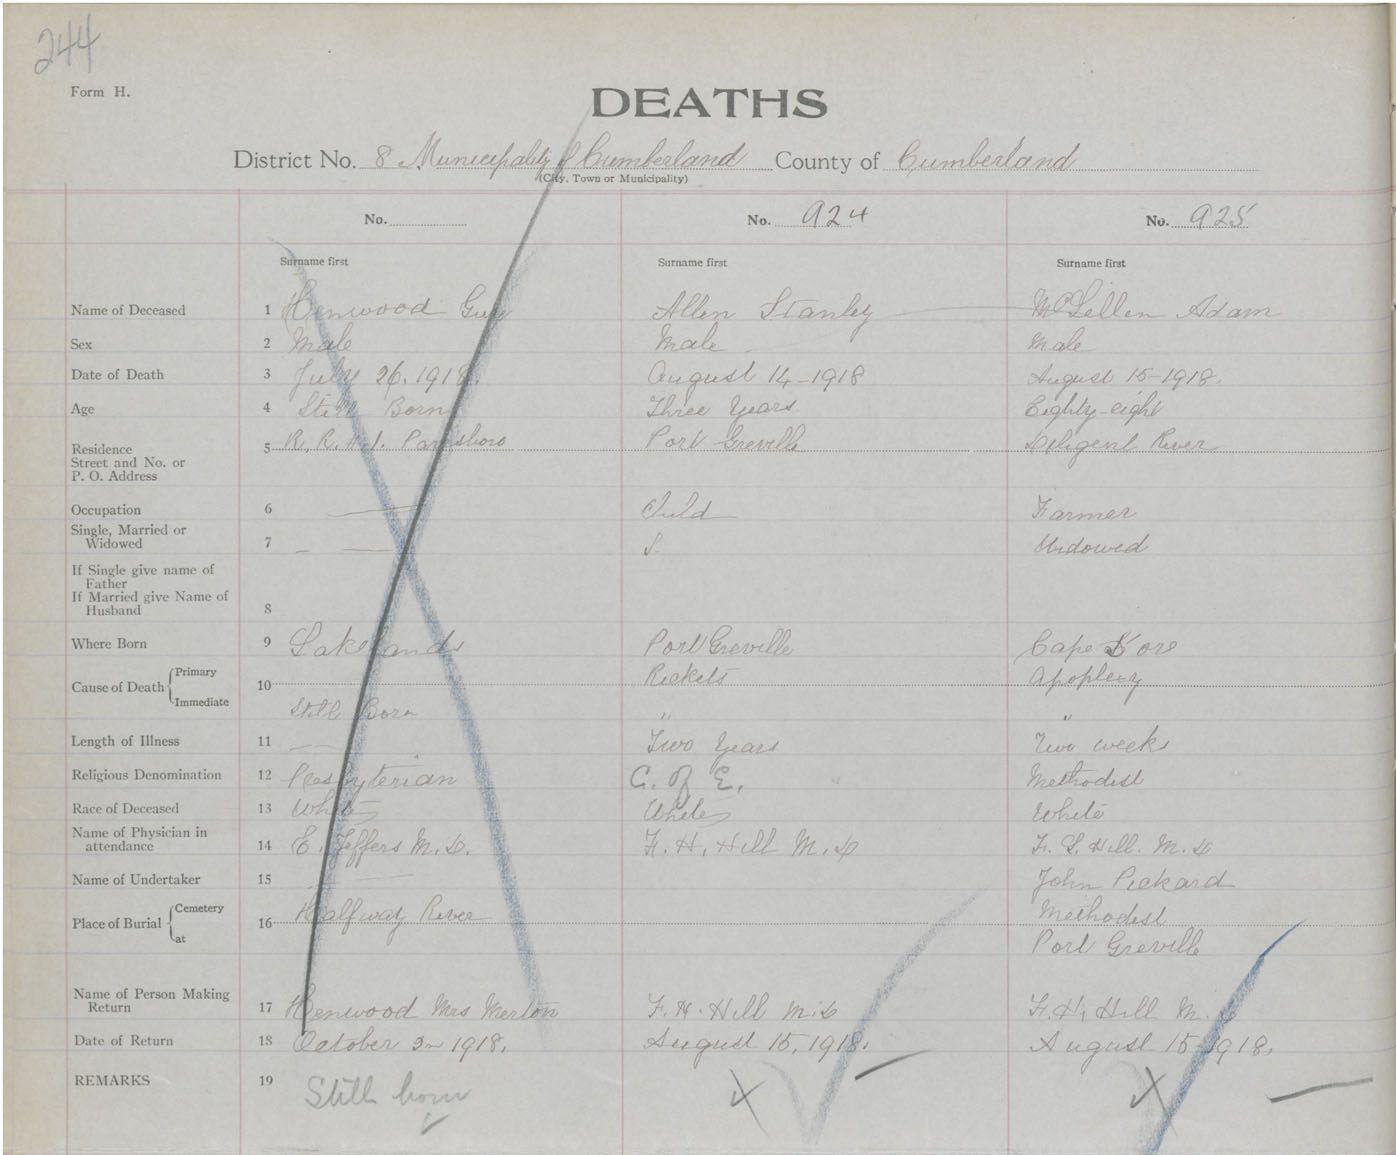 244
Form H.
DEATHS
District No. 8 Municipality of Cumberland County of Cumberland
(City, Town or Municipality)
No. No. 924 No. 925
Surname first Surname first Surname first
Name of Deceased 1 Henwood Allen Stanley McLellen Adam
Sex 2 Male Male Male
Date of Death 3 July 26, 1918. August 14-1918 August 15-1918.
Age 4 Still Born Three Years Eighty-eight
Residence
Street and No. or
P. O. Address
5 R. R. #1. Parrsboro Port Greville Diligent River
Occupation 6 Child Farmer
Single, Married or
Widowed 7 S. Widowed
If Single give name of
Father
If Married give Name of
Husband 8
Where Born 9 Lakelands Port Greville Cape D'ore
Cause of Death Primary
Immediate
10 Rickets Apoplexy
Still Born " "
Length of Illness 11 Two Years Two weeks
Religious Denomination 12 Presbyterian C. of E. Methodist
Race of Deceased 13 White White White
Name of Physician in
attendance 14 E. Jeffers M.D. F. H. Hill M.D F. L. Hill. M.D
Name of Undertaker 15 John Pickard
Place of Burial Cemetery
at
16 Halfway River Methodist
Port Greville
Name of Person Making
Return 17 Henwood Mrs Merton F. H. Hill M.D F. H, Hill M. D
Date of Return 18 October 1918. August 15, 1918. August 15-1918.
REMARKS 19 Still born